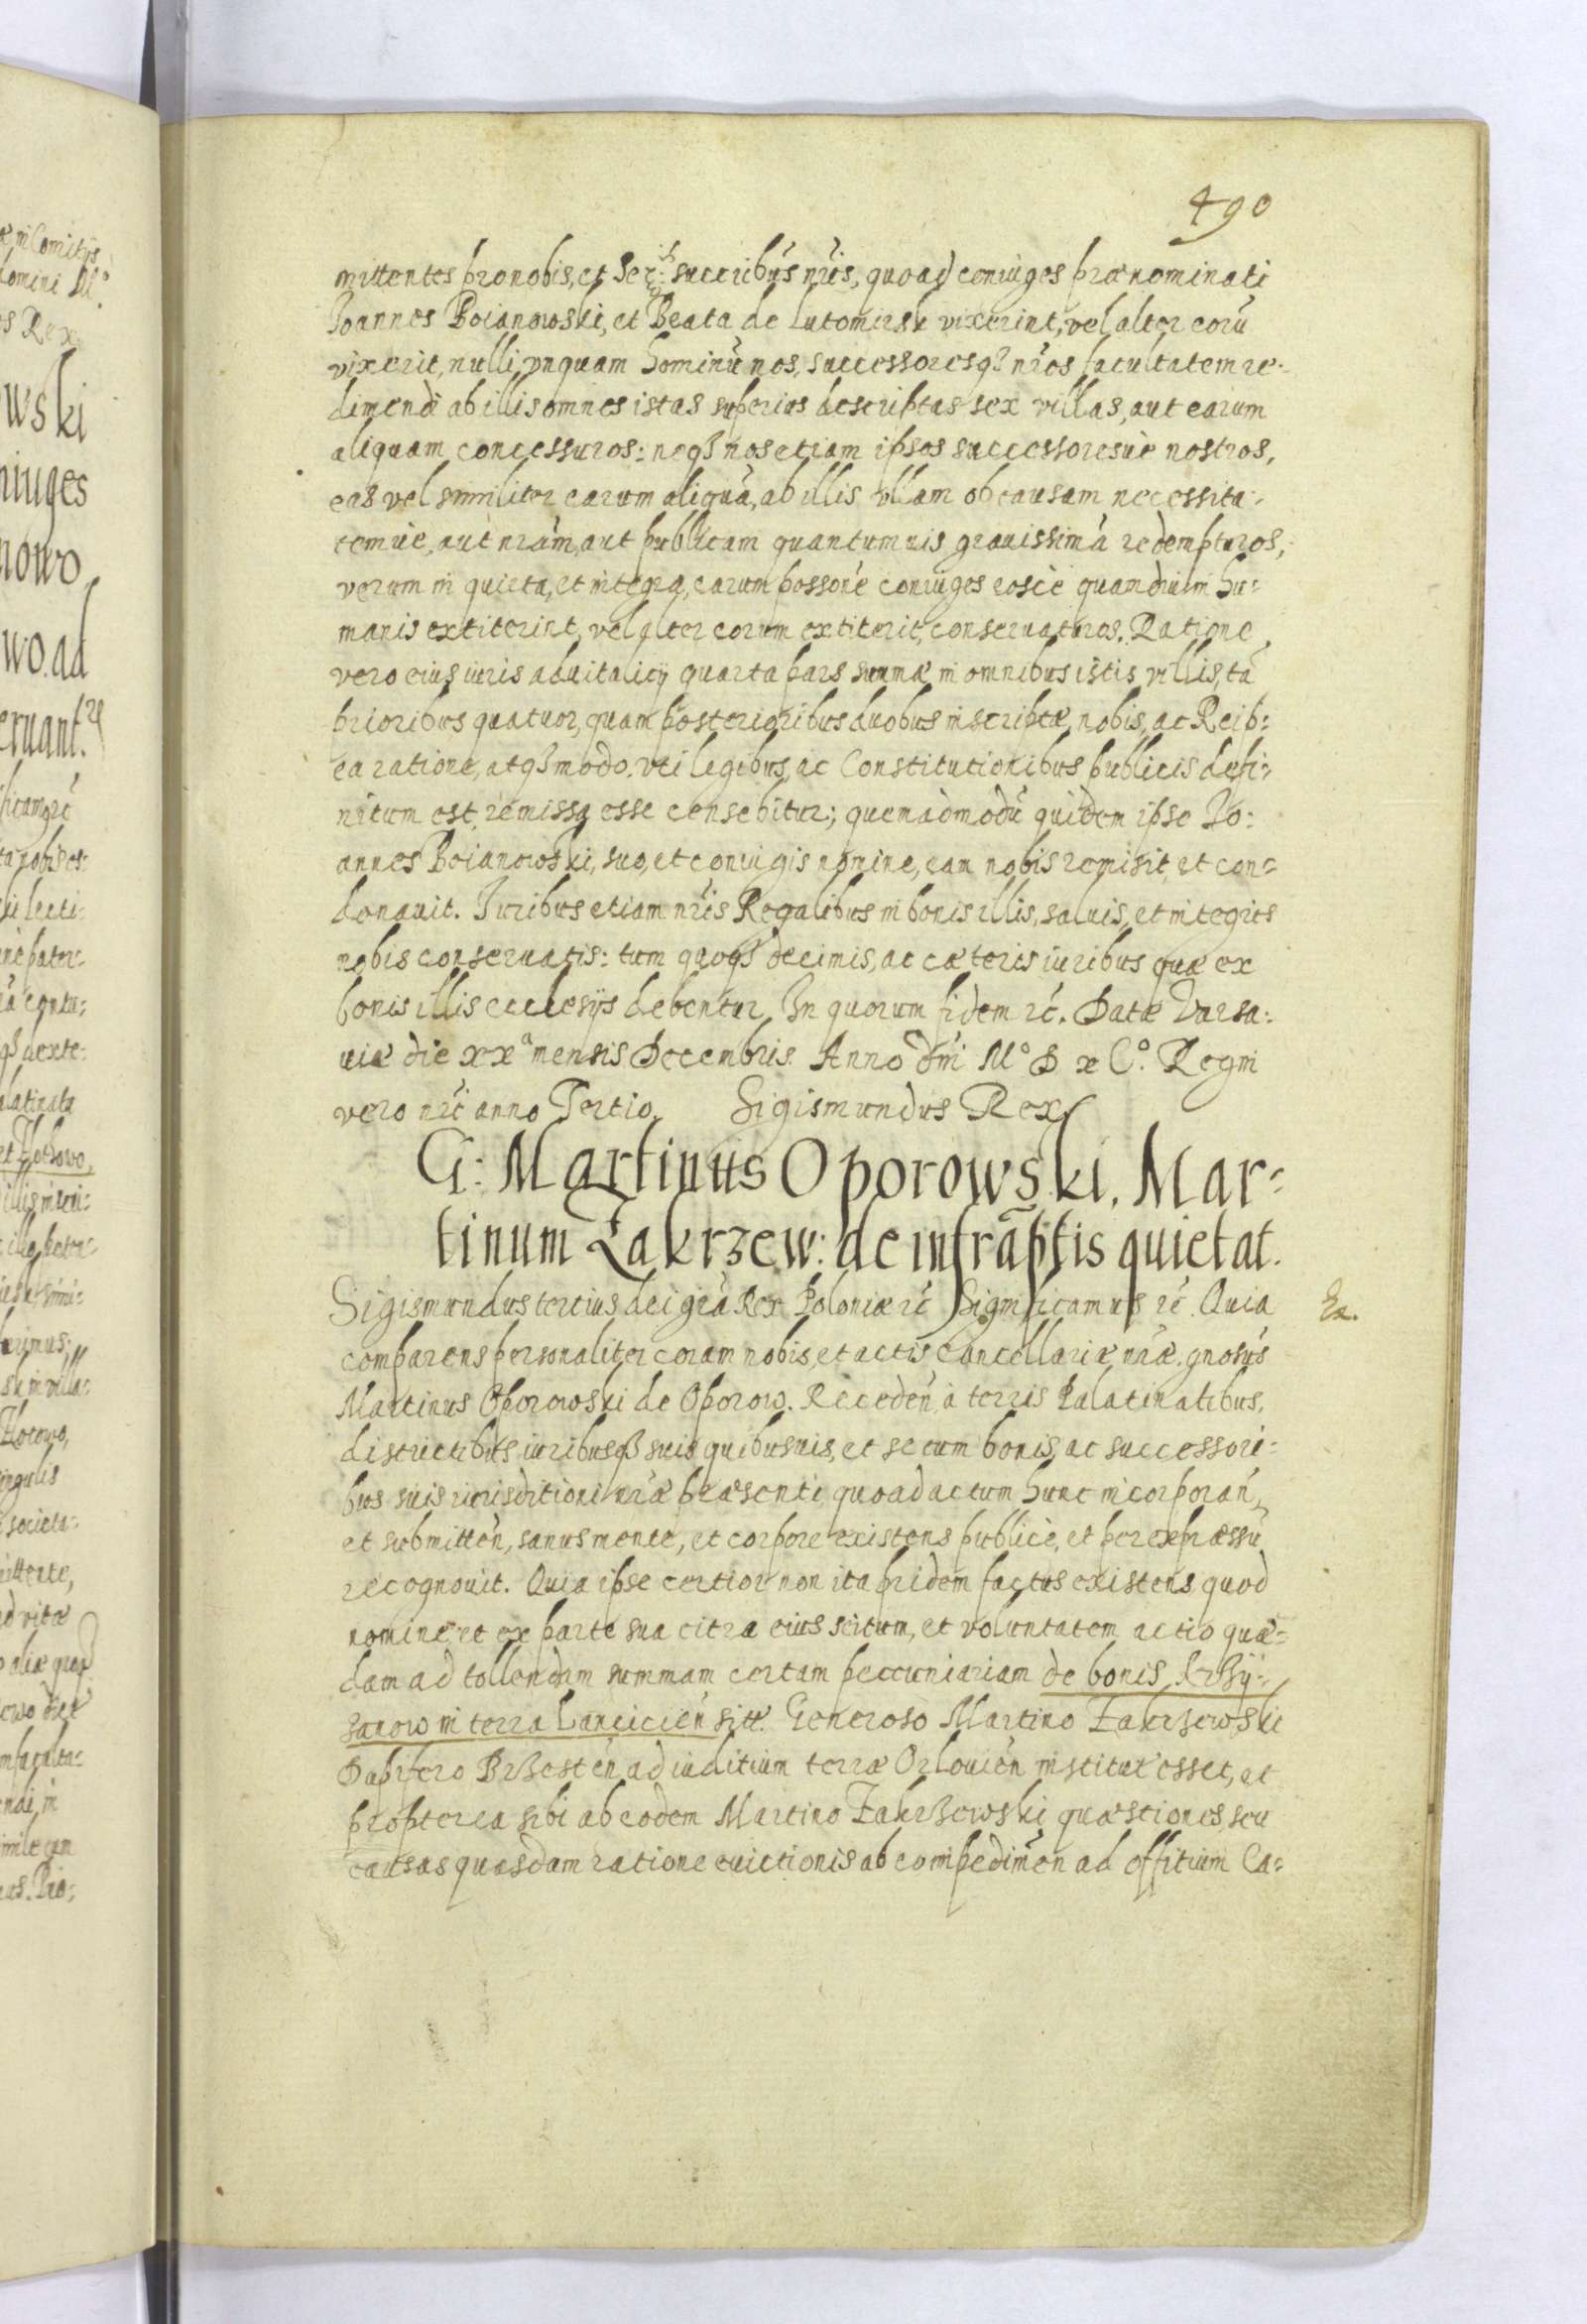 490
mittentes pro nobis, et Ser: succribus nris, quoad coniuges prænominati
Joannes Boianowski, et Beata de Lutomirsk vixerint, vel alter eorũ
vixerit, nulli vnquam hominũ nos, successoresq3 nros facultatem re-
dimendi ab illis omnes istas superius descriptas sex villas, aut earum
aliquam concessuros: neq3 nos etiam ipsos successoresuè nostros,
eas vel similiter earum aliquã, ab illis vllam ob causam necessita-
temuè, aut nram, aut publicam quantumuis grauissimã redempturos,
verum in quieta, et integra, earum possone coniuges eosdẽ quamdiu in hu-
manis extiterint, vel alter eorum extiterit, conseruaturos. Ratione
vero eius iuris aduitalicij quarta pars summæ in omnibus istis villis, tã
prioribus quatuor, quam posterioribus duobus inscriptæ, nobis, ac Reip:
ea ratione, atq3 modo, vti legibus, ac Constitutionibus publicis defi-
nitum est, remissa esse censebitur; quemadmodũ quidem ipse Jo-
annes Boianowski, suo, et coniugis nomine, eam nobis remisit, et con-
donauit. Iuribus etiam nris Regalibus in bonis illis, saluis, et integris
nobis conseruatis: tum quoq3 decimis, ac cæteris iuribus quæ ex
bonis illis ecclesijs debentur. In quorum fidem rc. Datæ Varsa-
uiæ die xxa mensis Decembris. Anno Dni Mo D x Co. Regni
vero nri anno Tertio. Sigismundus Rex
G: Martinus Oporowski, Mar-
tinum Zakrzew: de infraptis quietat.
Sigismundus tertius dei gra Rex Poloniæ rc Significamus rc. Quia
Ex.
comparens personaliter coram nobis, et actis Cancellariæ nræ, gnosus
Martinus Oporowski de Oporow. Receden à terris Palatinatibus,
districtibus, iuribusq3 suis quibusuis, et se cum bonis, ac successori-
bus suis iurisditioni nræ præsenti quoad actum hunc incorporan,
et submitten, sanus mente, et corpore existens publicè, et per expræssũ
recognouit. Quia ipse certior non ita pridem factus existens quod
nomine, et ex parte sua citra eius scitum, et voluntatem actio quæ-
dam ad tollendam summam certam peccuniariam de bonis Krzij-
zanow in terra Lancicien sitt. Generoso Martino Zakrzewski
Dapifero Brzesten ad iuditium terræ Orlouien institut' esset, et
propterea sibi ab eodem Martino Zakrzewski quæstiones seu
causas quasdam ratione euictionis ab eo impedimen ad offitium Ca-